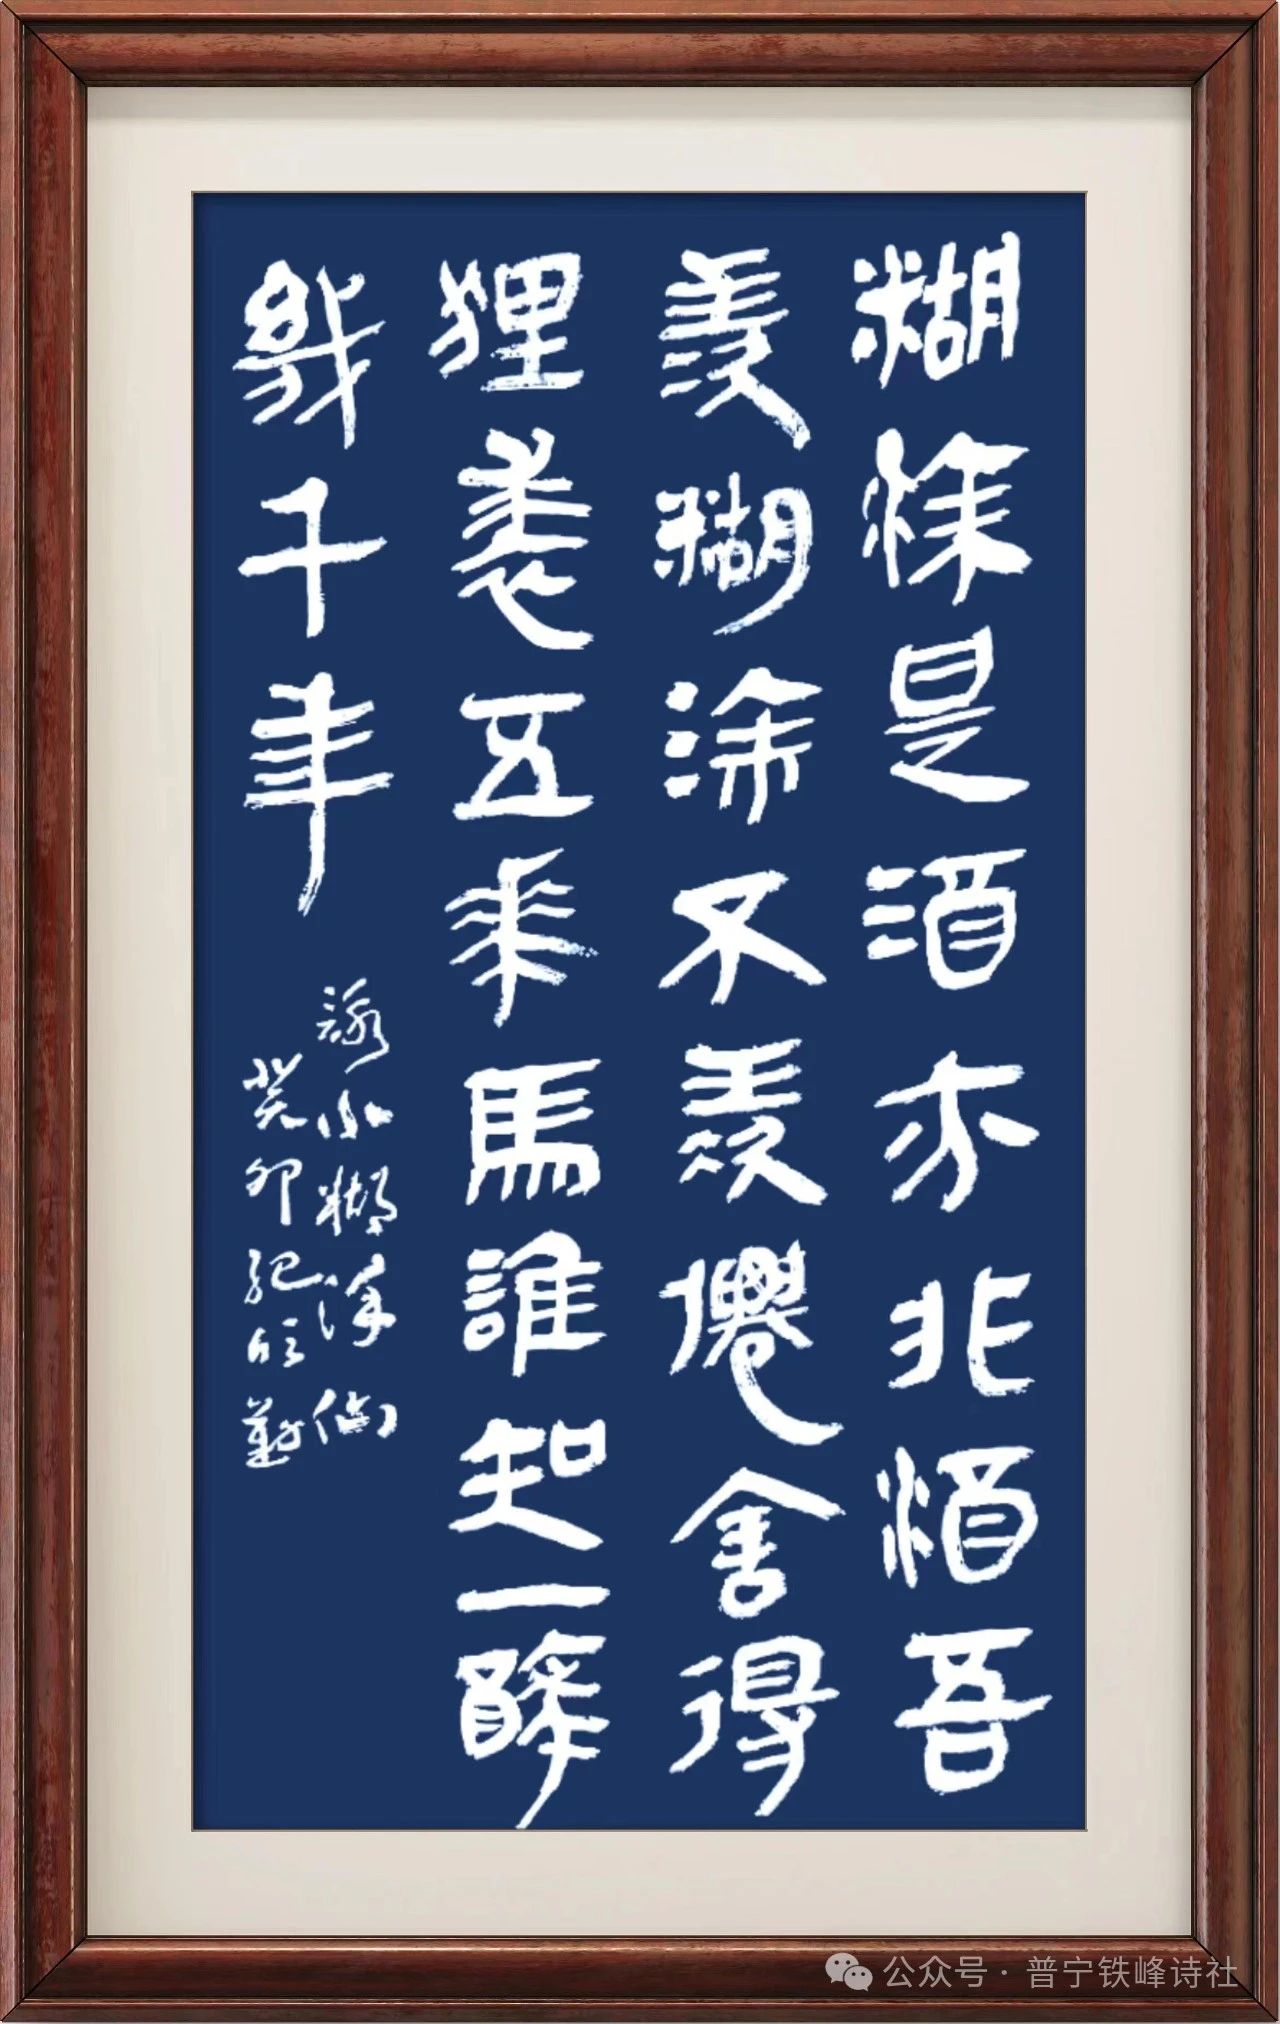 糊涂是酒亦非酒吾
羡糊涂不羡僊舍得
狸裘五乘馬誰知一醉
幾千年
詠小糊涂僊
癸卯
公众号·普宁铁峰诗社